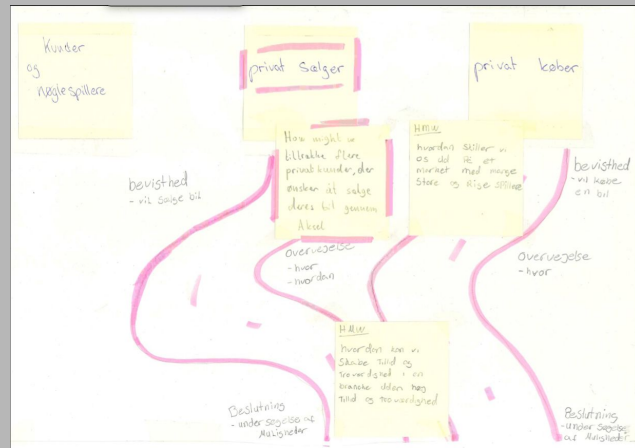 Kunder
og
Nøglespillere
privat Sælger
privat køber
How might we
tiltrække flere
privatkunder, der
ønsker at sælge
deres bil gennem
Aksel
HMW.
hvordan skiller vi
os ud på et
market med mange
Store og Rige spillere
bevisthed
- vil Sælge bil
bevisthed
- vil købe
en bil
overvejelse
- hvor
- hvordan
overvejelse
- hvor
HMW.
hvordan kan vi
Skabe Tillid og
troværdighed i en
branche uden høg
Tillid og troværdighed
Beslutning
- undersøgelse af
Muligheder
Beslutning
- undersøgelse
af Muligheder